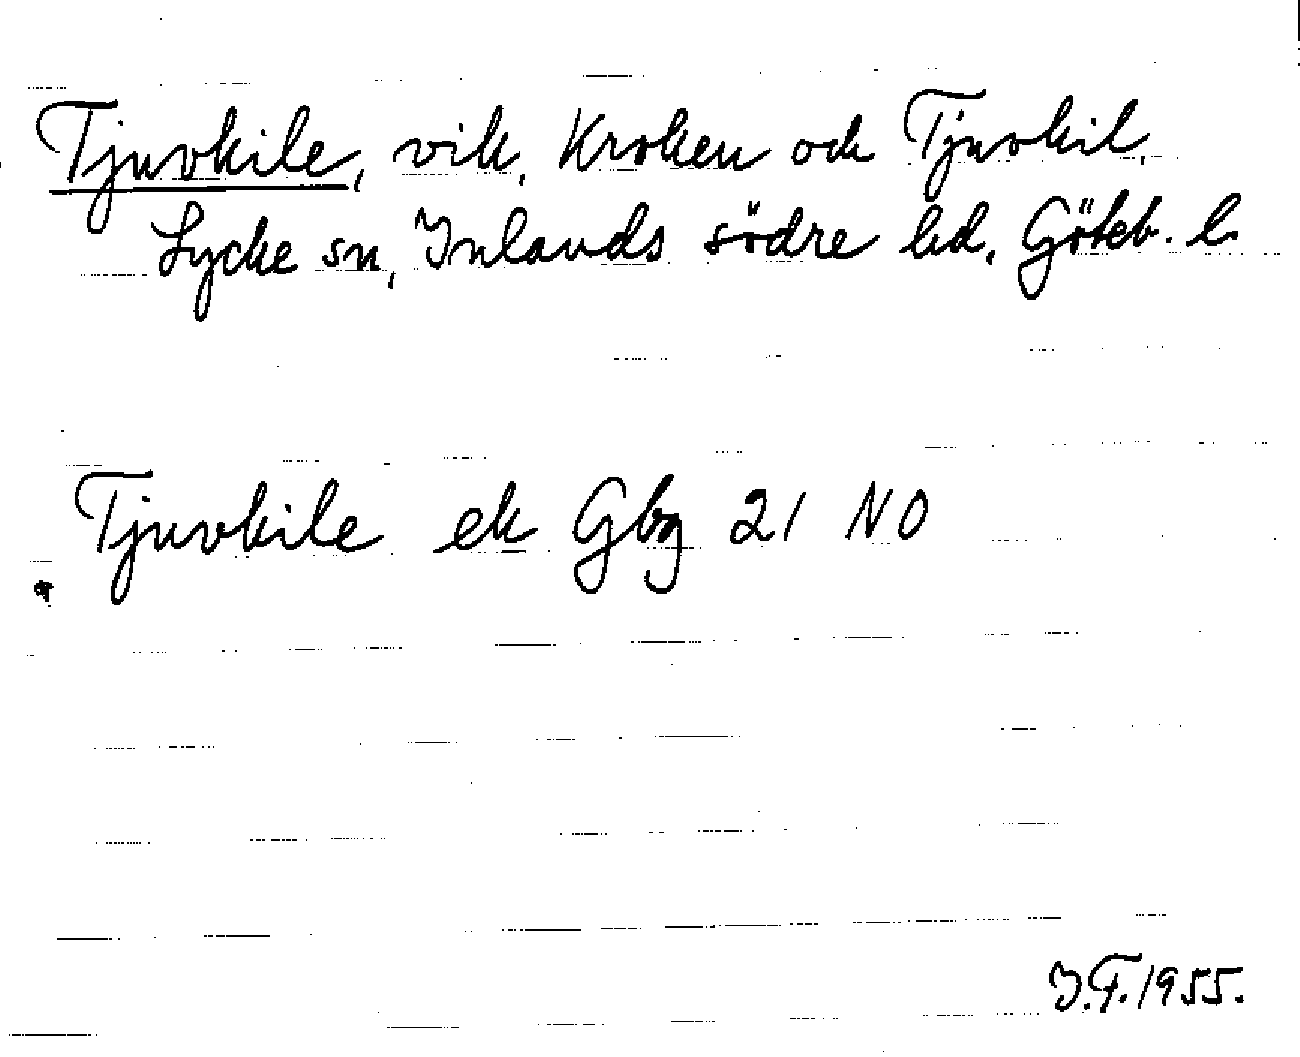 Tjuvkile, vik, Kroken och Tjuvkil,
Lycke sn, Inlands södre hd, Göteb. l.
Tjuvkile ek Gbg 21 NO
I.F. 1955.